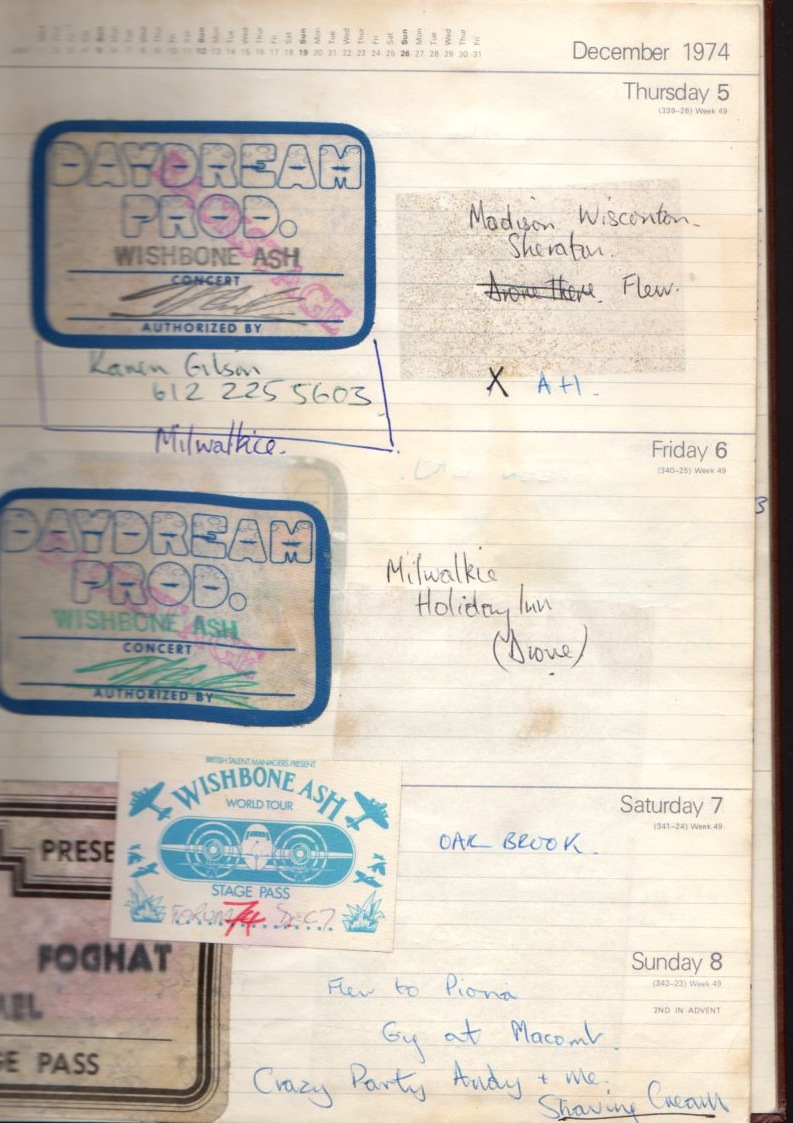 December 1974
Thursday 5
(339-26) Week 49
DAYDREAM
PROD.
WISHBONE ASH
CONCERT
AUTHORIZED BY
Madison Wisconton.
Sheraton.
Drove there. Flew.
X AH.
Karen Gilson
612 225 5603
Milwalkie.
Friday 6
(340-25) Week 49
DAYDREAM
PROD.
WISHBONE ASH
CONCERT
AUTHORIZED BY
Milwalkie
Holiday Inn
(Drove)
Saturday 7
(341-24) Week 49
OAK BROOK.
BRITISH TALENT MANAGERS PRESENT
WISHBONE ASH
WORLD TOUR
STAGE PASS
FORUM 74 DEC 7
PRESE
FOGHAT
AEL
GE PASS
Sunday 8
(342-23) Week 49
2ND IN ADVENT
Flew to Pioria
Gig at Macomb.
Crazy Party Andy + me.
Shaving Cream